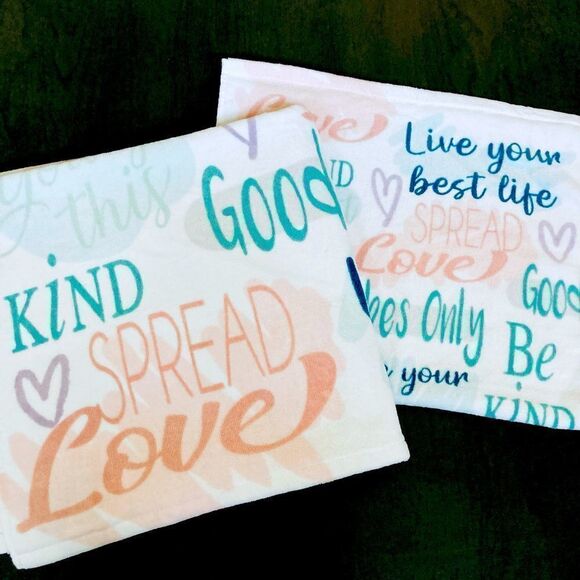 this
GOOD
KiND
SPREAD
Love
Love
Live your
best life
SPREAD
Love
GOOD
Only
Be
your
KIND